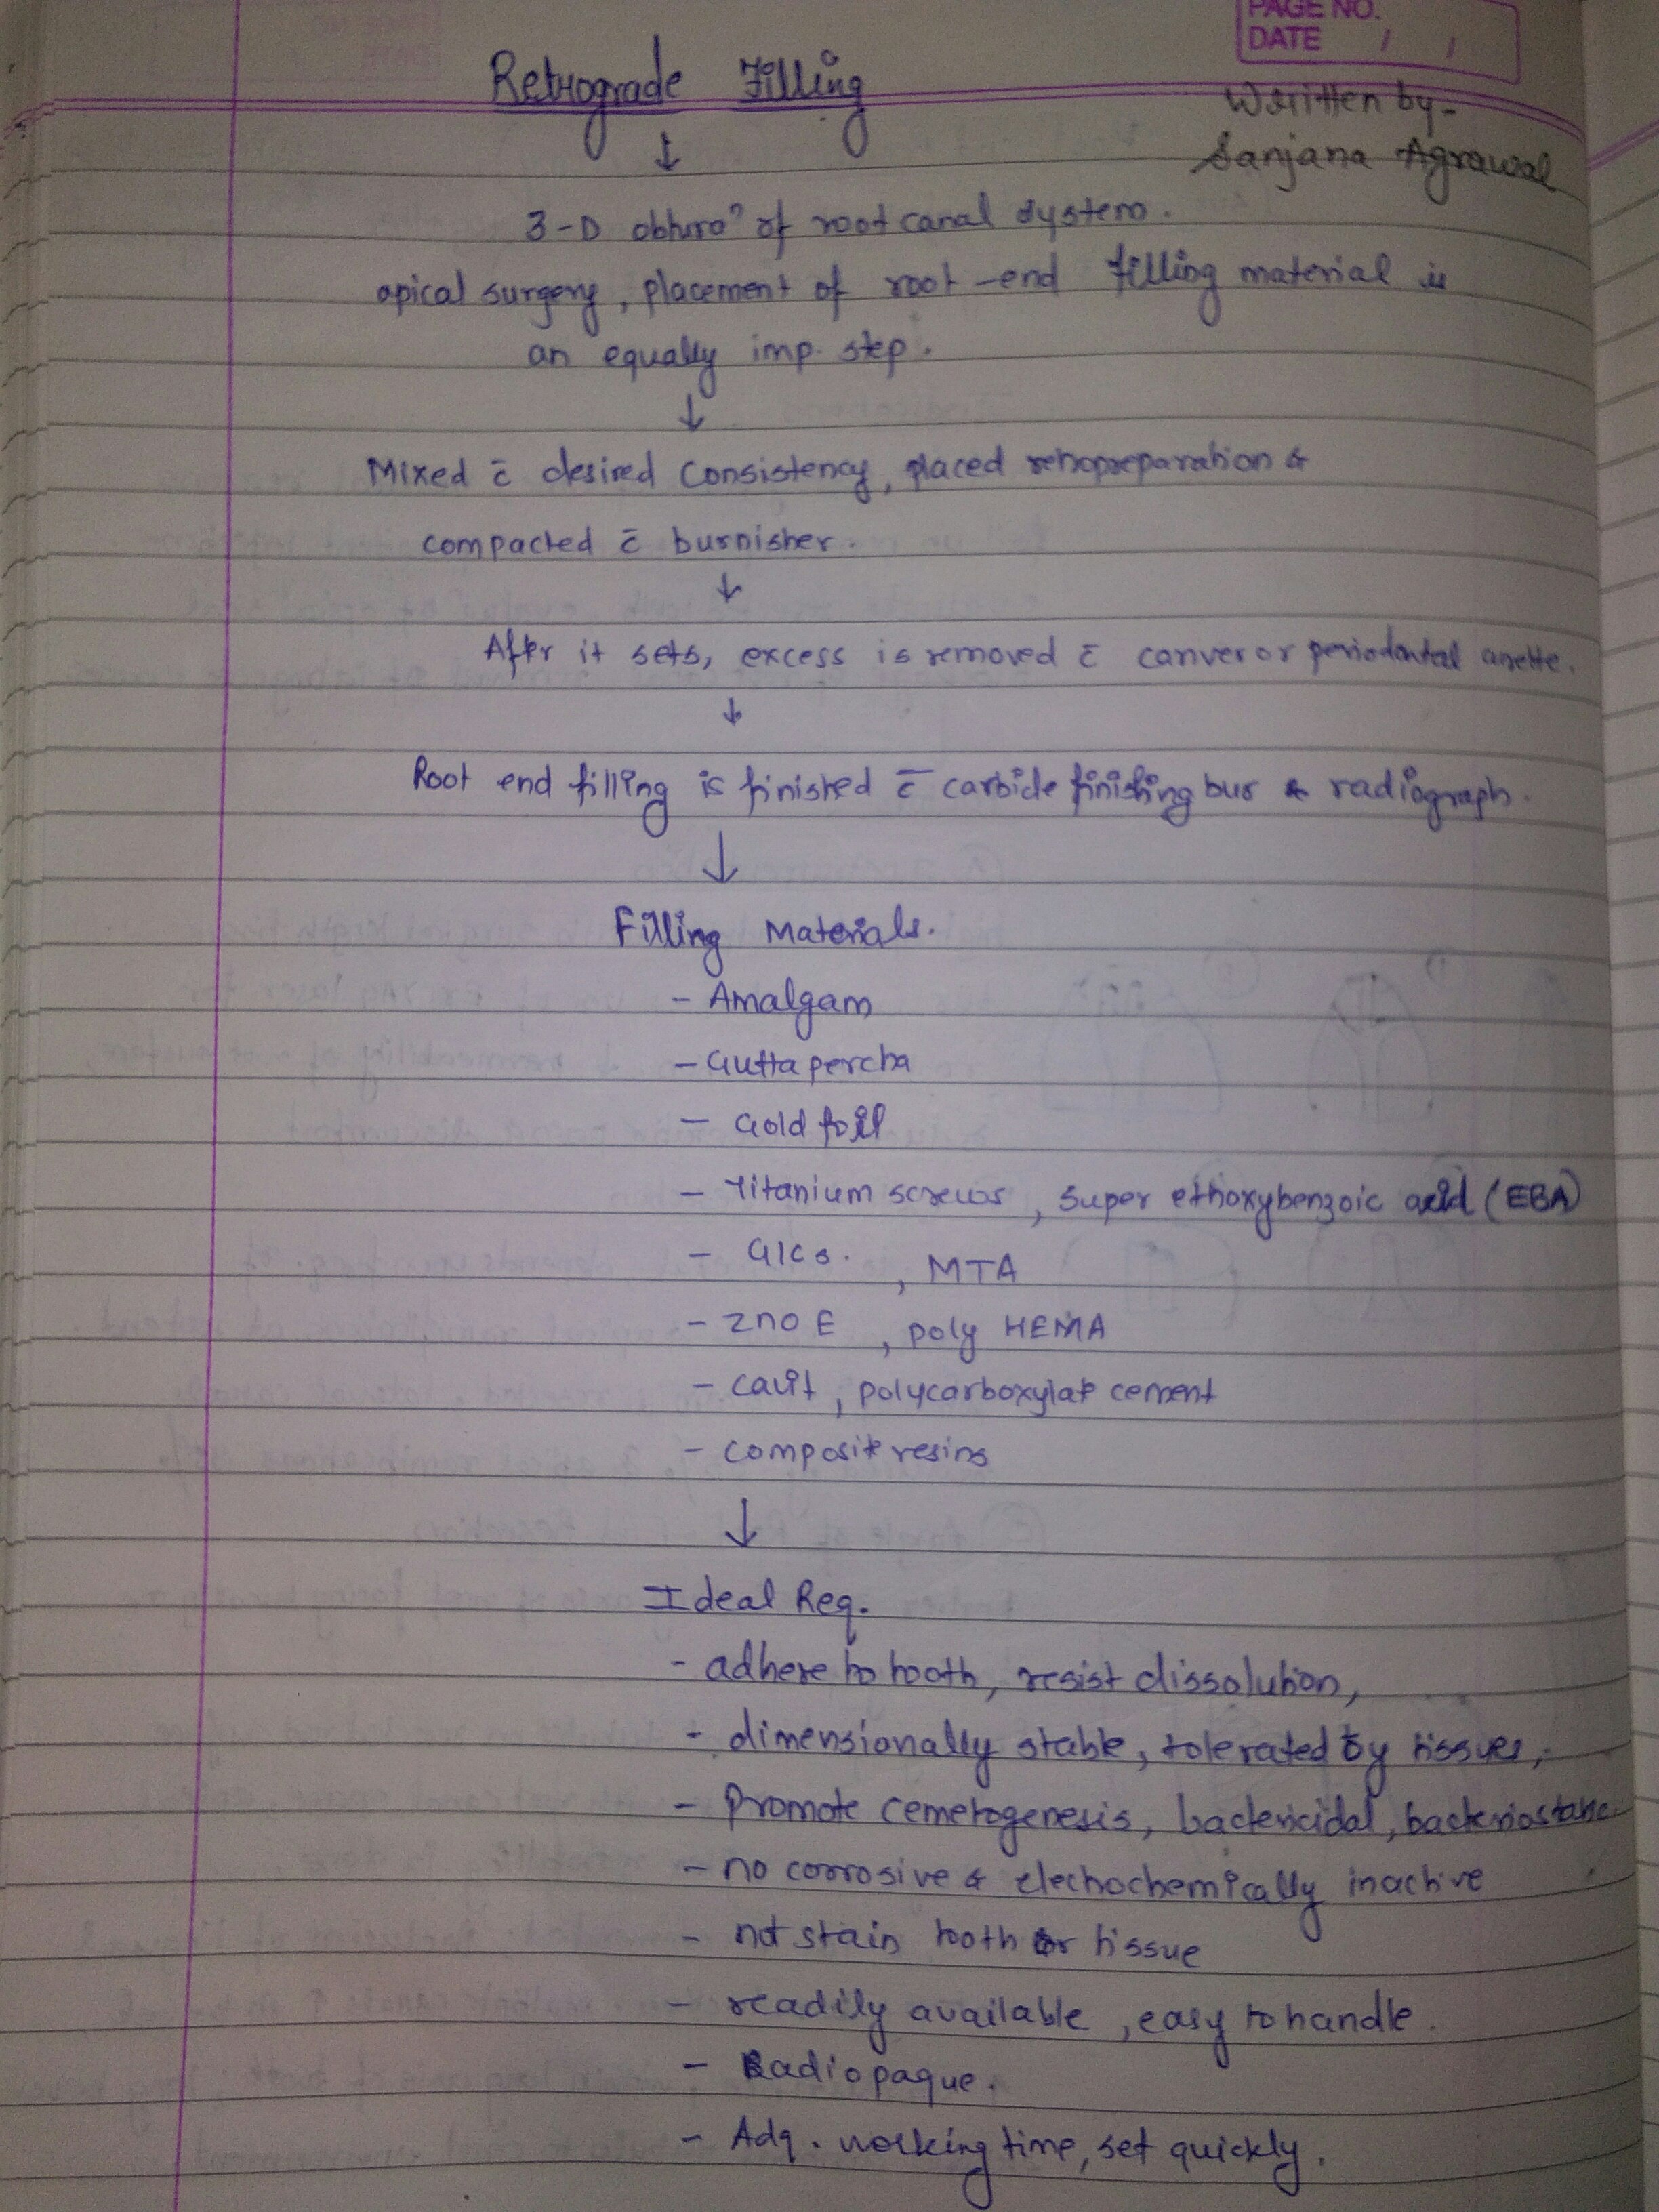 PAGE NO.
DATE / /
Retrograde Filling
Written by-
Sanjana Agrawal
↓
3-D obturaⁿ of root canal system.
apical surgery, placement of root-end filling material is
an equally imp. step.
↓
Mixed c̄ desired consistency, placed retropreparation &
compacted c̄ burnisher.
↓
After it sets, excess is removed c̄ carver or periodontal curette.
↓
Root end filling is finished c̄ carbide finishing bur & radiograph.
↓
Filling Materials.
- Amalgam
- Gutta percha
- Gold foil
- Titanium screws, super ethoxybenzoic acid (EBA)
- GICs. , MTA
- ZnO E , poly HEMA
- cavit, polycarboxylate cement
- composite resins
↓
Ideal Req.
- adhere to tooth, resist dissolution,
- dimensionally stable, tolerated by tissues,
- Promote cemetogenesis, bactericidal, bacteriostatic
- no corrosive & electrochemically inactive
- not stain tooth or tissue
- readily available, easy to handle.
- Radiopaque.
- Adq. working time, set quickly.